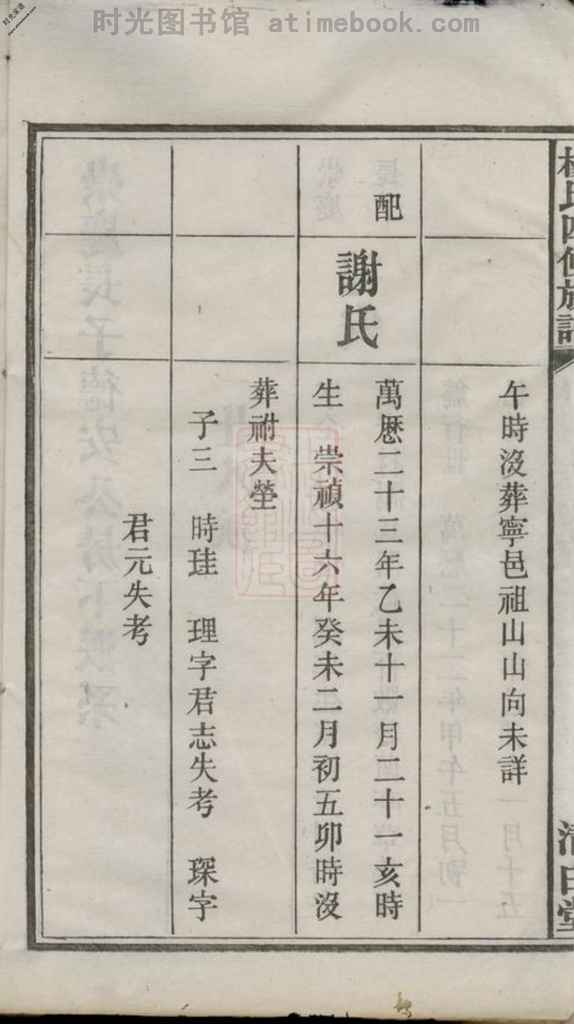 时光图书馆 atimebook.com
午時沒葬寧邑祖山山向未詳
配
謝氏
萬厯二十三年乙未十一月二十一亥時
生 崇禎十六年癸未二月初五卯時沒
葬祔夫塋
子三 時珪 理字君志失考 琛字
君元失考